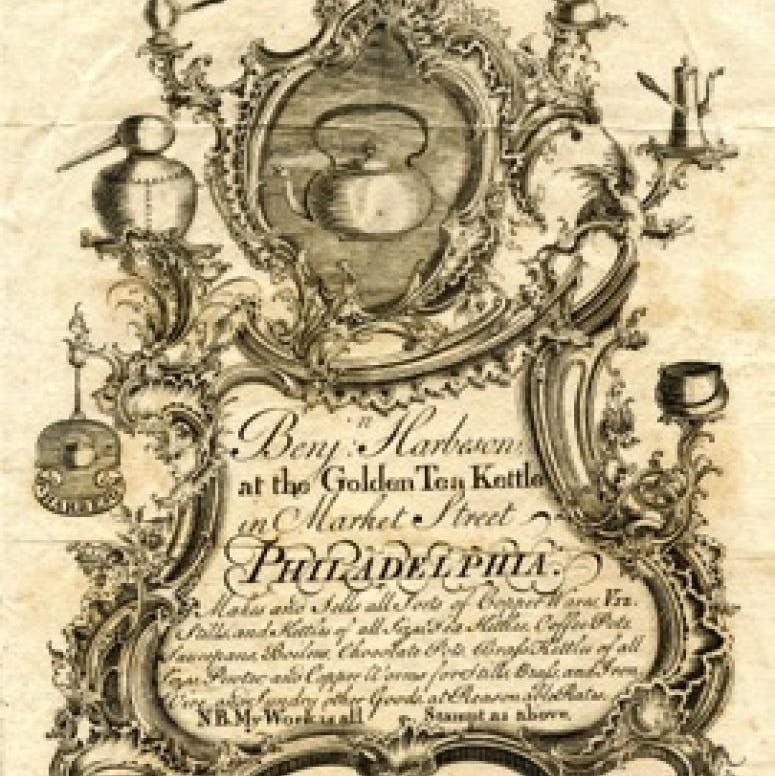 Benj:n Harbeson
at the Golden Tea Kettle
in Market Street
PHILADELPHIA.
Makes and Sells all Sorts of Copper Wares, Viz.
Stills, and Kettles of all Sizes Tea Kettles, Coffee Pots
Saucepans, Boilers, Chocolate Pots, Brass Kettles of all
Sizes, Pewter and Copper Worms for Stills, Brass, and Iron
Wire, also sundry other Goods, at Reasonable Rates.
N B. My Work is all Stampt as above.